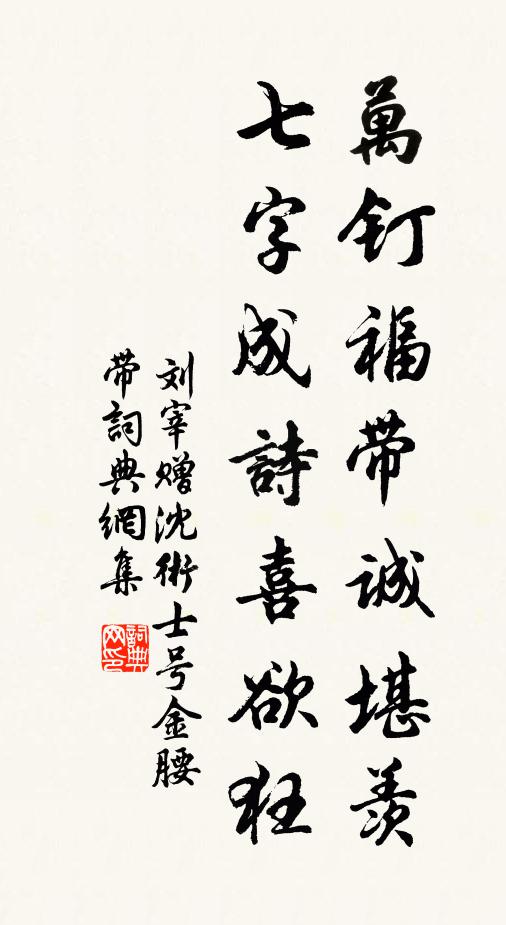 萬釘福带誠堪羨
七字成詩喜欲狂
刘宰赠沈術士号金腰
带詞典網集
詞典网印